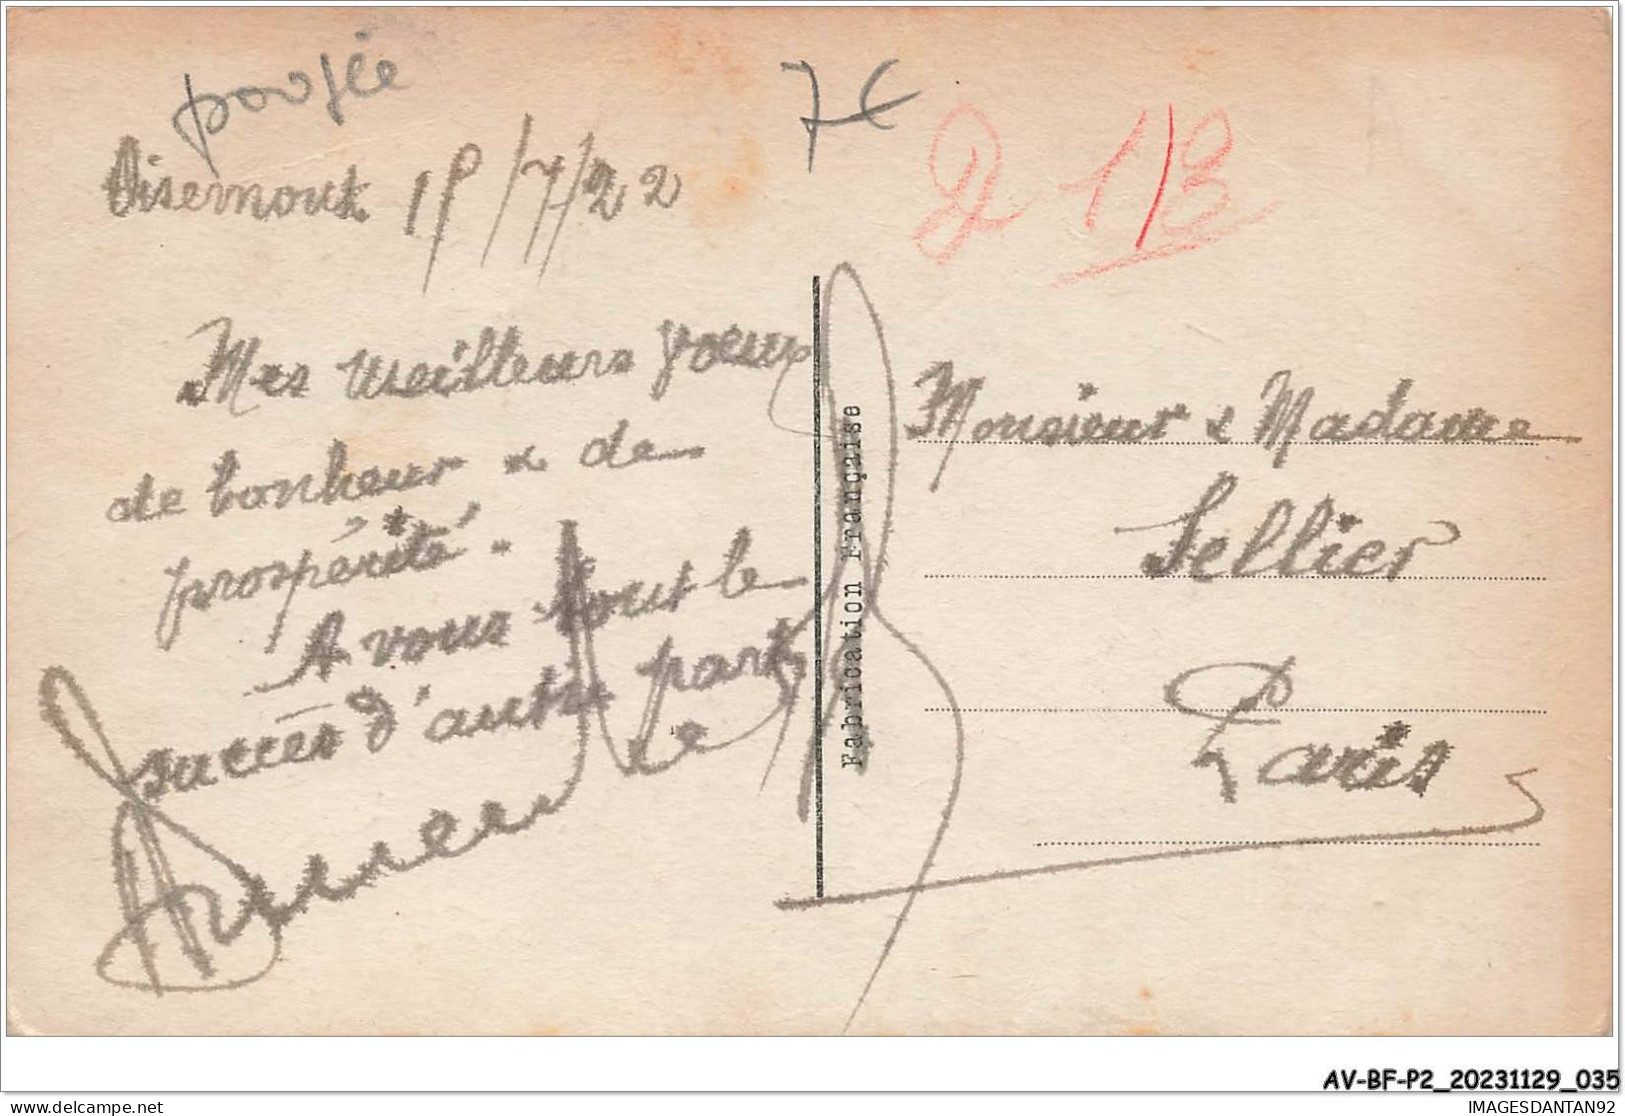 poupée
7€
1/3
Oisemont 18/7/22
Mes meilleurs voeux
de bonheur & de
prospérité.
A vous tout le
succès d'autre part
Le
Fabrication Française
Monsieur & Madame
Sellier
Paris
AV-BF-P2_20231129_035
delcampe.net
IMAGESDANTAN92